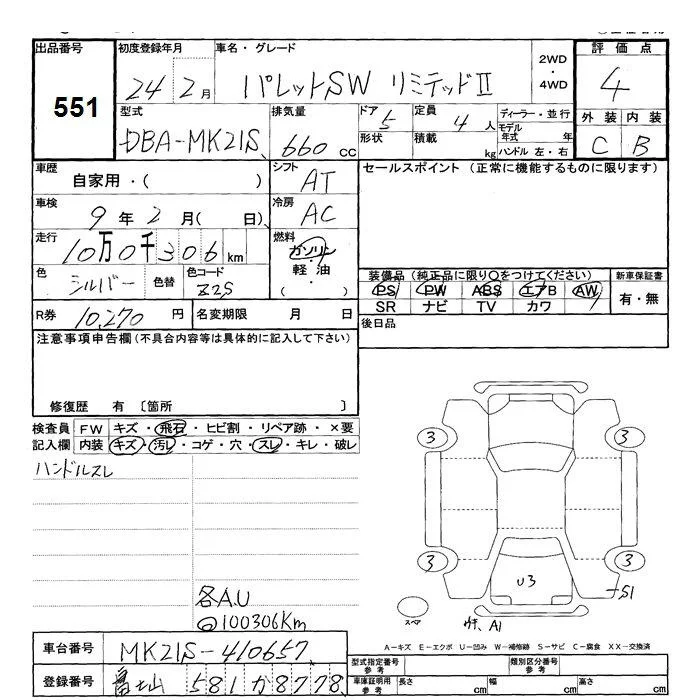 出品番号
551
初度登録年月
24 2月
車名・グレード
パレットSW リミテッドⅡ
2WD
・
4WD
評価点
4
外装 内装
C B
型式
DBA-MK21S
排気量
660 cc
ドア 5
形状
定員 4人
積載 kg
ディーラー・並行
モデル年式 年
ハンドル 左・右
車歴
自家用・( )
シフト AT
車検
9年2月( 日)
冷房 AC
走行
10万0千306km
燃料
ガソリン
・
軽油
( )
色
シルバー
色替
色コード
Z2S
R券 10,270円
名変期限 月 日
セールスポイント (正常に機能するものに限ります)
装備品 (純正品に限り○をつけてください)
PS PW ABS エアB AW
SR ナビ TV カワ
新車保証書
有・無
後日品
注意事項申告欄(不具合内容等は具体的に記入して下さい)
修復歴 有 〔箇所 〕
検査員記入欄
FW キズ・飛石・ヒビ割・リペア跡・×要
内装 キズ・汚レ・コゲ・穴・スレ・キレ・破レ
ハンドルスレ
各A.U
100306Km
3 3
3 3
U3
S1
スペア
A1
A-キズ E-エクボ U-凹み W-補修跡 S-サビ C-腐食 XX-交換済
車台番号 MK21S-410657
登録番号 富士山 581 か 8778
型式指定番号
参考
類別区分番号
参考
車庫証明用
参考
長さ cm
幅 cm
高さ cm